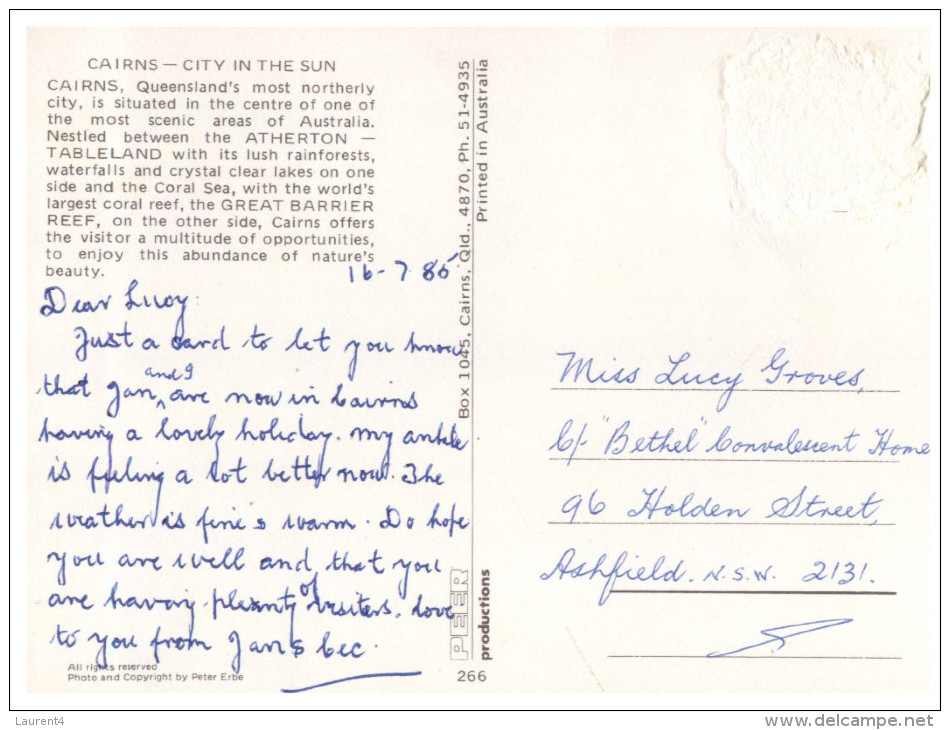 CAIRNS — CITY IN THE SUN
CAIRNS, Queensland's most northerly
city, is situated in the centre of one of
the most scenic areas of Australia.
Nestled between the ATHERTON —
TABLELAND with its lush rainforests,
waterfalls and crystal clear lakes on one
side and the Coral Sea, with the world's
largest coral reef, the GREAT BARRIER
REEF, on the other side, Cairns offers
the visitor a multitude of opportunities,
to enjoy this abundance of nature's
beauty.
16-7 86
Dear Lucy:
Just a card to let you know
that Jan and I are now in Cairns
having a lovely holiday. my ankle
is feeling a lot better now. The
weather is fine & warm. Do hope
you are well and, that you
are having plenty of visiters. Love
to you from Jan & Cec.
All rights reserved
Photo and Copyright by Peter Erbe
Box 1045, Cairns, Qld., 4870, Ph. 51-4935
Printed in Australia
PEER
productions
266
Miss Lucy Groves,
C/- "Bethel" Convalescent Home
96 Holden Street,
Ashfield. N.S.W. 2131.
Laurent4
www.delcampe.net